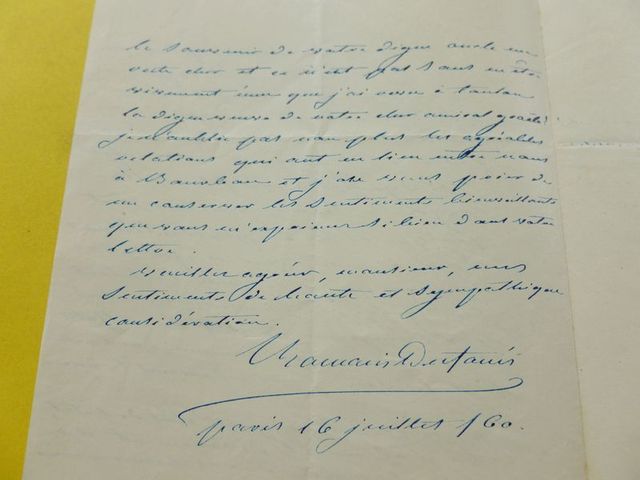 le souvenir de votre digne oncle me
reste cher et ce n'est pas sans
vivement ému que j'ai à toulon
la digne veuve de notre cher amiral
je n'oublie pas non plus les agréables
relations qui ont eu lieu entre nous
à Bourbon et j'ose vous prier de
me conserver les sentiments bienveillants
que vous m'exprimez si bien dans votre
lettre.
Veuillez agréer, monsieur, mes
sentiments de haute et sympathique
considération.
paris 16 juillet /60.